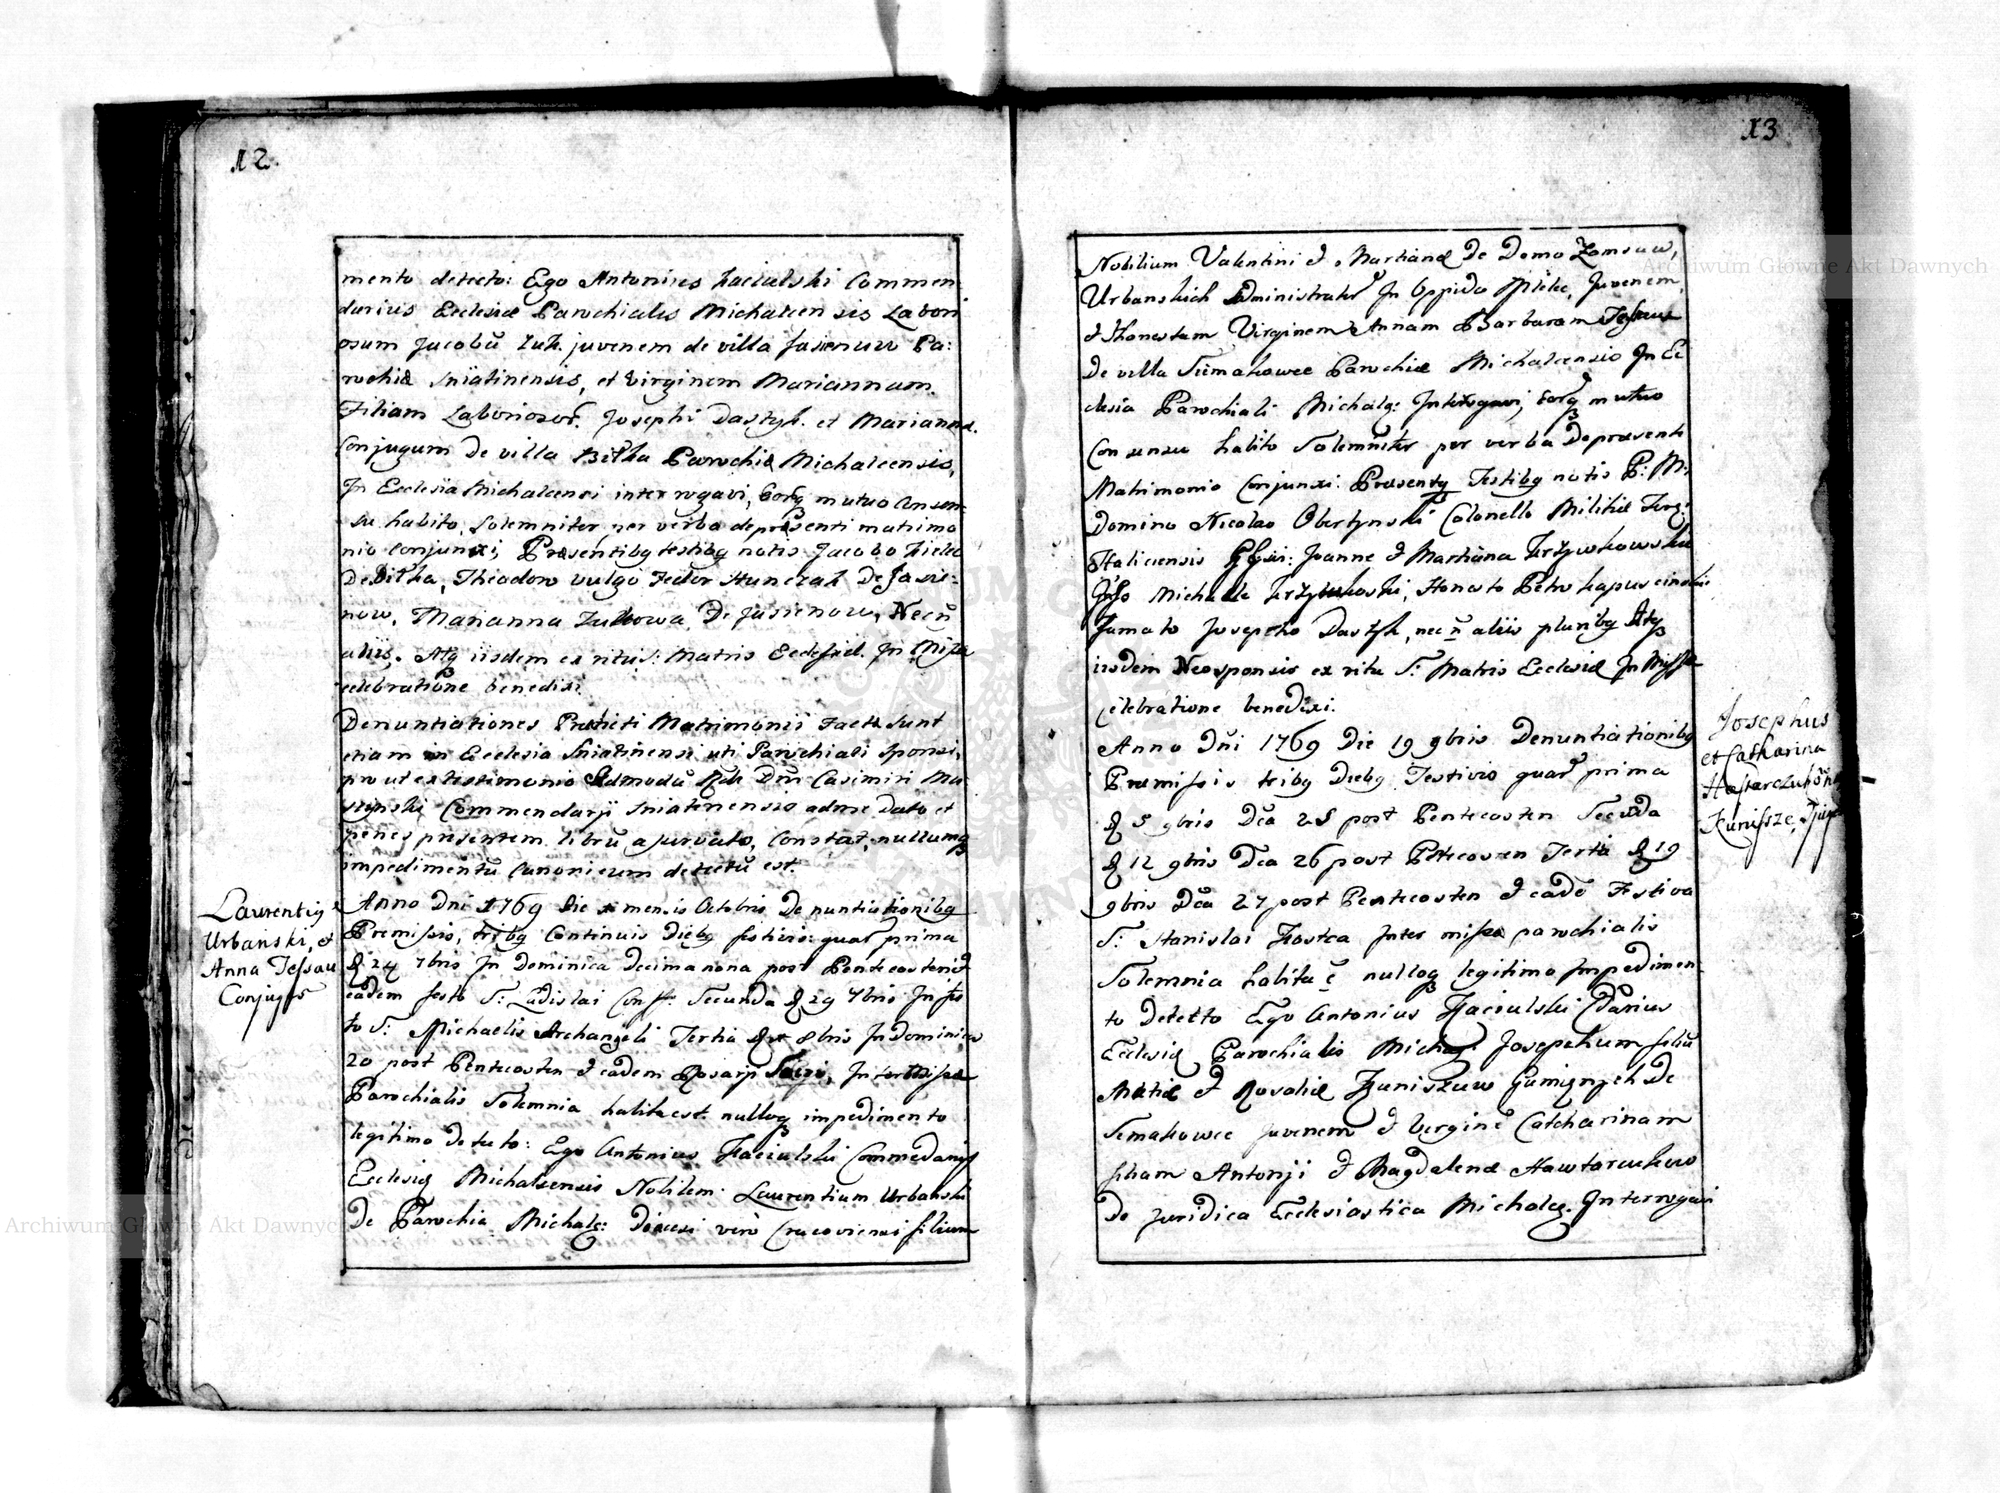 12.
mento detecto: Ego Antonius Kaciulski Commen
darius Ecclesiæ Parochialis Michalcensis Labori
osum Jacobũ Zuk juvenem de villa Jasienuw Pa:
rochiæ Sniatinensis, et Virginem Mariannam
Filiam Laborioso㝠Josephi Dastyk. et Mariannæ.
Conjugum De villa Bełka Parochiæ Michalcensis,
In Ecclesia Michalcensi interrogavi, Eorq mutuo Consen
su habito, Solemniter per verba de præsenti matrimo
nio Conjunxi, Præsentibq testibq notis Jacobo
De Bełka, Theodoro vulgo Fedor Hunczak De Jasie:
now, Marianna Zukowa De Jasienow, Necñ
aliis. Atq iisdem ex ritu S: Matris Ecclesiæ. In Missæ
celebratione benedixi
Denuntiationes Præfacti Matrimonii Factæ Sunt
etiam in Ecclesia Sniatinensi uti Parochiali Sponsi,
prout ex testimonio Admodũ Rndi Dñi Casimiri
Commendarij Sniatinensis ad me Dato et
penes præsentem librũ asservato, Constat, nullumq
impedimentũ Canonicum detectũ est.
Laurentiq
Urbanski, et
Anna Jessau
Conjuges
Anno Dni 1769 Die mensis Octobris Denuntiationibq
Præmissis, tribq Continuis Diebq festivis quar prima
24 7bris In Dominica Decima nona post Pentecosten et
eadem festo S: Ladislai Conff: Secunda 29 7bris In fes
to S: Michaelis Archangeli Tertia 8bris In Dominica
20 post Pentecosten et eadem Rosarij Sacri, Inter Missæ
Parochialis Solemnia habita est nulloq impedimento
legitimo detecto: Ego Antonius Kaciulski Commedariq
Ecclesiæ Michalcensis Nobilem Laurentium Urbanski
De Parochia Michalc: Diœcesi vero Cracoviensi filium
13
Nobilium Valentini et Marianæ De Domo Zomsuw,
Urbanskich Administrator In Oppido Juvenem,
et Honestam Virginem Annam Barbaram Jessau
De villa Siemakowce Parochiæ Michalcensis In Ec
clesia Parochiali Michalc: Interogavi, Eorq mutuo
Consensu habito Solemniter per verba De præsenti
Matrimonio Conjunxi. Præsentq Testibq notis P: M:
Domino Nicolao Obertynski Colonello Militiæ Terræ
Haliciensis Joanne et Marianna Krzywkowski
Michaele Krzywkoski, Honesto Petro
Famato Josepho Dastyk, necñ aliis pluribq Atq
iisdem Neosponsis ex ritu S: Matris Ecclesiæ In Missæ
Celebratione benedixi.
Josephus
et Catharina
Kunissze,
Anno Dni 1769 Die 19 9bris Denuntiationibq
Præmissis tribq Diebq Festivis quar prima
5 9bris Dca 25 post Pentecosten Secunda
12 9bris Dca 26 post Pentecosten Tertia 19
9bris Dca 27 post Pentecosten et eadẽ Festiva
S: Stanislai Kostca Inter missæ parochialis
Solemnia habita ẽ nulloq legitimo Impedimen
to Detecto Ego Antonius Kaciulski Cdarius
Ecclesiæ Parochialis Michaq: Josephum filiũ
Matiæ et Rosaliæ Kuniszuw De
Semakowce juvenem et Virginẽ Catcharinam
filiam Antonji et Magdalenæ
De Juridica Ecclesiastica Michalcz. Interrogavi